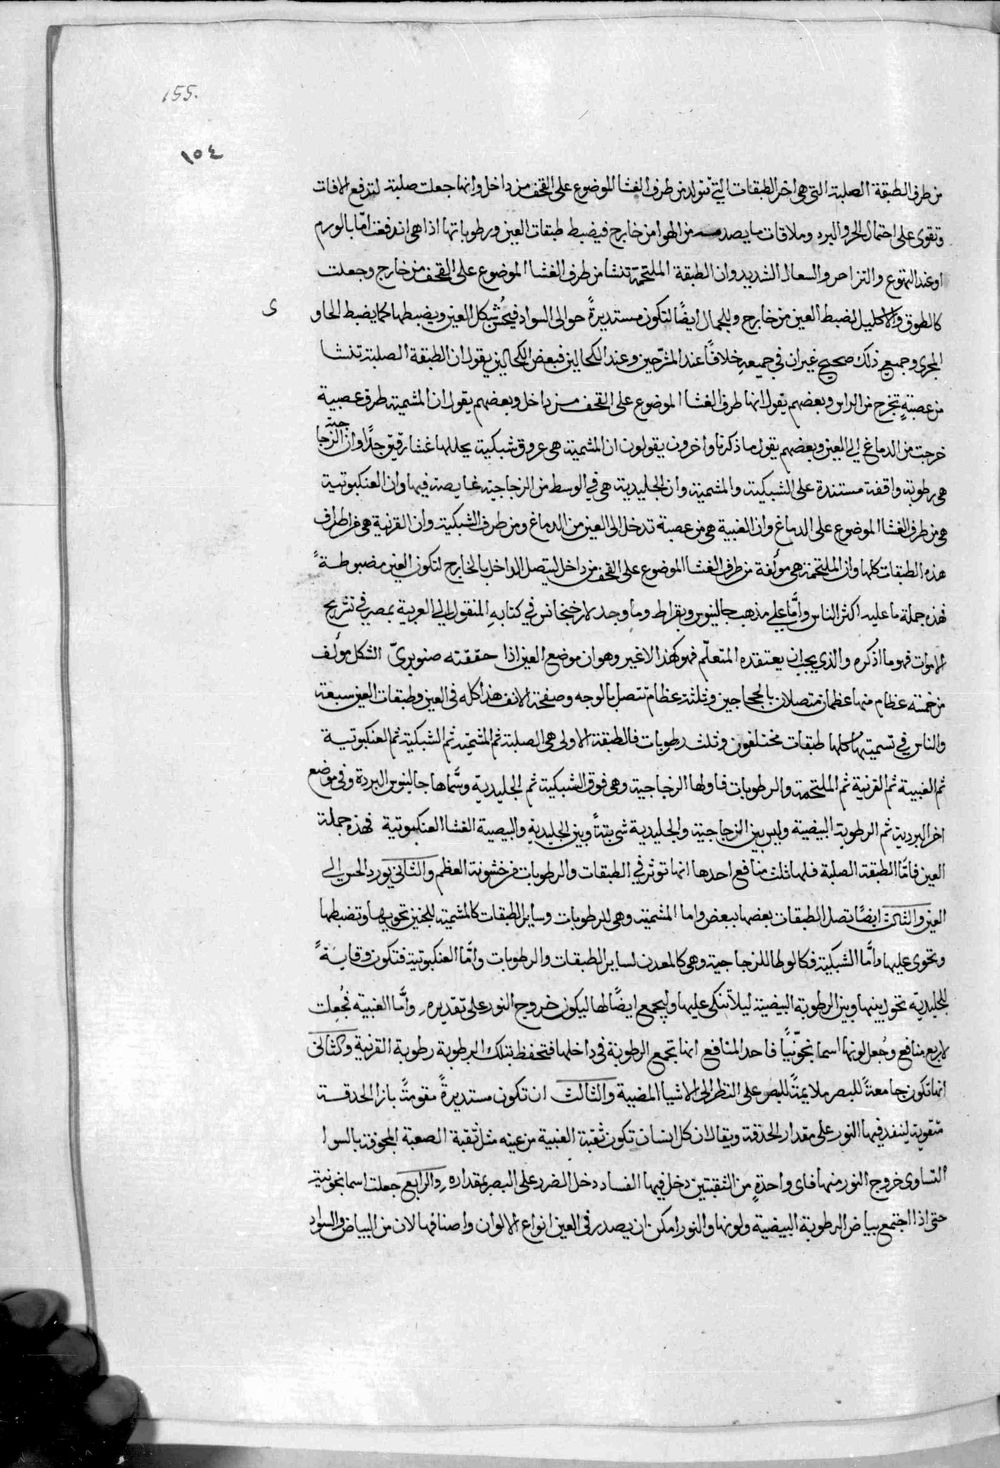 155.
١٥٤
من طرف الطبقة الصلبة التي هي اخر الطبقات التي تتولد من طرف الغشا الموضوع على القحف من داخل وانها جعلت صلبة لتدفع الافات
وتقوى على احتمال الحر والبرد وملاقات ما يصدمه من الهوا من خارج فيضبط طبقات العين ورطوباتها اذا هي اندفعت امّا بالورم
او عند التهوع والتزاحر والسعال الشديد وان الطبقة الملتحمة تنشا من طرف الغشا الموضوع على القحف من خارج وجعلت
كالطوق والاكليل لضبط العين من خارج وللجمال ايضًا لتكون مستديرةً حوالى السواد فيحسُن شكل العين ويضبطها كما يضبط الحاوى
المجرى وجميع ذلك صحيح غير ان في جميعه خلافًا عند المشرّحين وعند الكحالين فبعض الكحالين يقول ان الطبقة الصلبة تنشا
من عصبةٍ تخرج من الراس وبعضهم يقول انها طرف الغشا الموضوع على القحف من داخل وبعضهم يقول ان المشيمية طرف عصبية
خرجت من الدماغ الى العين وبعضهم يقول ما ذكرنا واخرون يقولون ان المشيمية هي عروق شبكية يجللها غشا رقيق جدًا وان الزجاجية
هي رطوبة واقفة مستندة على الشبكية والمشيمية وان الجليدية هي في الوسط من الزجاجية غايصة فيها وان العنكبوتية
هي من طرف الغشا الموضوع على الدماغ وان العنبية هي من عصبة تدخل الى العين من الدماغ ومن طرف الشبكية وان القرنية هي من اطراف
هذه الطبقات كلها وان الملتحمة هي مولفة من طرف الغشا الموضوع على القحف من داخل ليتصل الداخل بالخارج لتكون العين مضبوطةً
فهذه جملة ما عليه اكثر الناس وامّا على مذهب جالينوس وبقراط وما وجد لارخيجانس في كتابه المنقول الى العربية بمصر في تشريح
الاموات فهو ما اذكره والذي يجب ان يعتقده المتعلّم فهو كهذا لا غير وهو ان موضع العين اذا حققته صنوبريّ الشكل مولف
من خمسة عظام منها عظمان متصلان بالحجاجين وثلثة عظام تتصل بالوجه وصفحة الانف هذا كله في العين وطبقات العين سبعة
والناس في تسميتها كلها طبقات مختلفون وثلث رطوبات فالطبقة الاولى هي الصلبة ثم المشيمية ثم الشبكية ثم العنكبوتية
ثم العنبية ثم القرنية ثم الملتحمة والرطوبات فاولها الزجاجية وهي فوق الشبكية ثم الجليدية وسمّاها جالينوس البردة وفي موضع
اخر البردية ثم الرطوبة البيضية وليس بين الزجاجية والجليدية شي بتّةً وبين الجليدية والبيضية الغشا العنكبوتية فهذه جملة
العين فامّا الطبقة الصلبة فلها ثلث منافع احدها انها توثر في الطبقات والرطوبات من خشونة العظم والثاني يورد الحس الى
العين والثالث ايضًا يصل الطبقات بعضها ببعض واما المشيمية وهي للرطوبات وساير الطبقات كالمشيمية للجنين تحويها وتضبطها
وتحوى عليها وامّا الشبكية فكالوطا للزجاجية وهي كالمعدن لساير الطبقات والرطوبات وامّا العنكبوتية فتكون وقايةً
للجليدية تحول بينها وبين الرطوبة البيضية ليلا تتكى عليها وليجمع ايضًا لها ليكون خروج النور على تقديره وامّا العنبية فجُعلت
لاربع منافع وجُعل لونها اسمانجونيّا فاحد المنافع انها تجمع الرطوبة في داخلها فتحفظ بتلك الرطوبة رطوبة القرنية والثاني
انها تكون جامعةً للبصر ملايمةً للبصر على النظر الى الاشيا المضية والثالث ان تكون مستديرةً مقومةً بازا الحدقة
مثقوبة لينفد فيها النور على مقدار الحدقة ويقال ان كل انسان تكون ثقبة العنبية من عينه مثل ثقبة العصبة المجوفة بالسوا
التساوى خروج النور منها فاى واحدةٍ من الثقبتين دخل فيها الفساد دخل الضرر على البصر بمقداره والرابع جعلت اسمانجونية
حتى اذا اجتمع بياض الرطوبة البيضية ولونها والنور امكن ان يصدر في العين انواع الالوان واصنافها لان من البياض والسواد